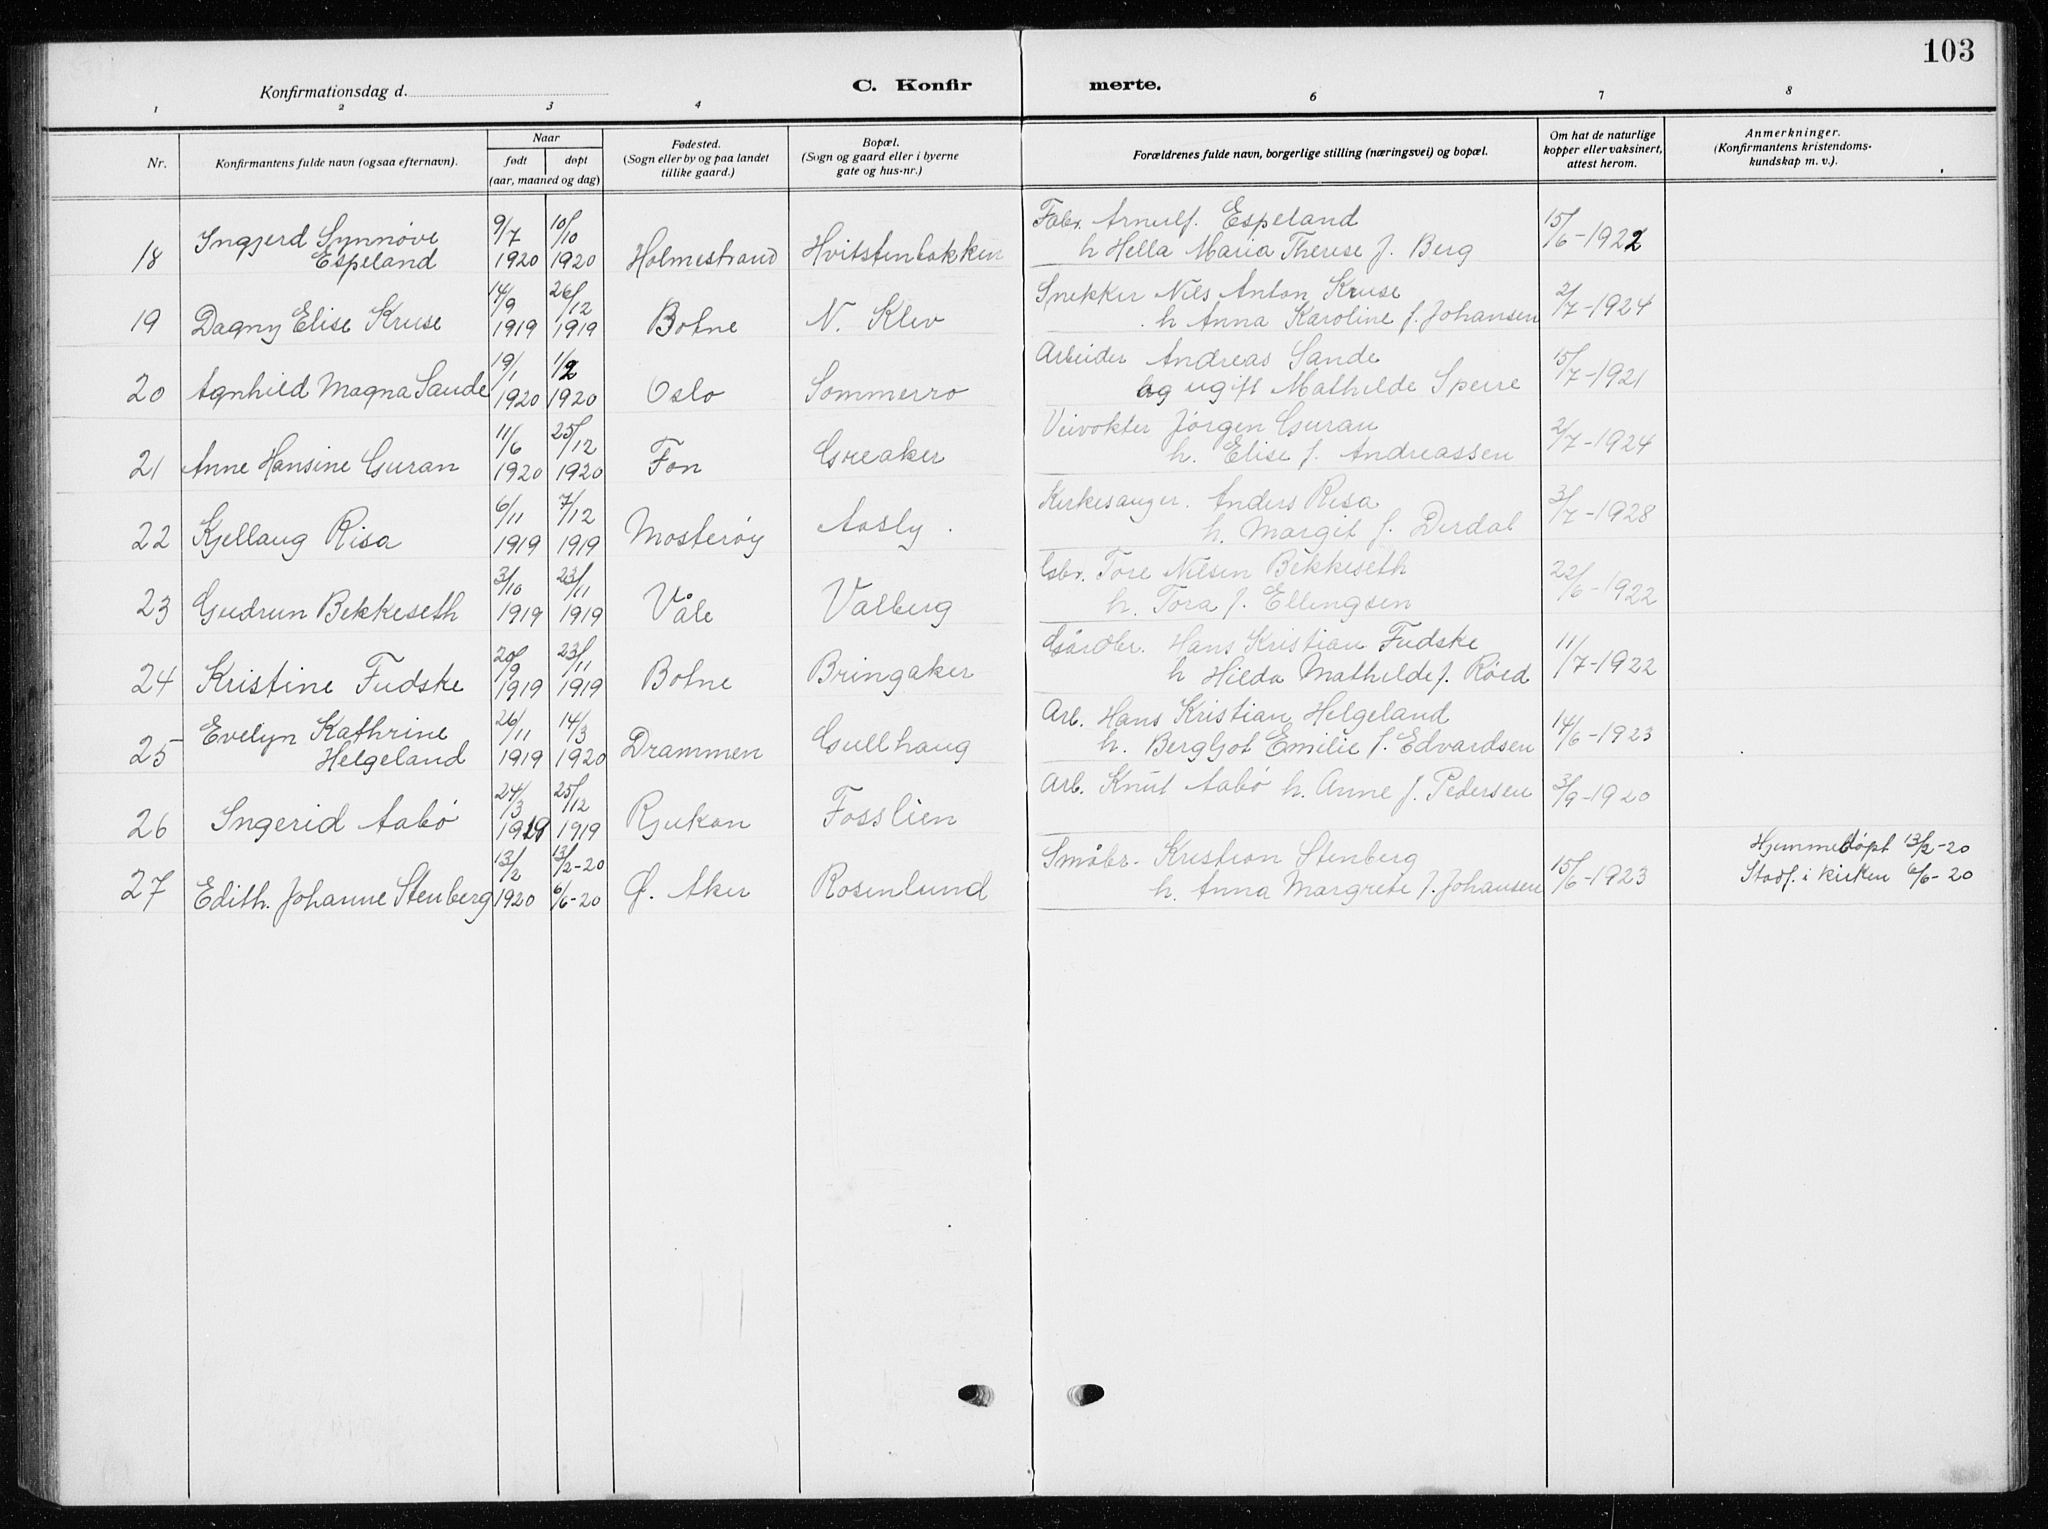 103
Konfirmationsdag d.
C. Konfirmerte.
1 2 3 4 6 7 8
Nr.
Konfirmantens fulde navn (ogsaa efternavn).
Naar
født
døpt
(aar, maaned og dag)
Fødested.
(Sogn eller by og paa landet
tillike gaard.)
Bopæl.
(Sogn og gaard eller i byerne
gate og hus-nr.)
Forældrenes fulde navn, borgerlige stilling (næringsvei) og bopæl.
Om hat de naturlige
kopper eller vaksinert,
attest herom.
Anmerkninger.
(Konfirmantens kristendoms-
kundskap m. v.).
18 Ingjerd Synnøve Espeland 9/7 1920 10/10 1920 Holmestrand Hvitstenbakken Fabr. Arnulf Espeland
h Hella Maria Therese f. Berg 15/6-1922
19 Dagny Elise Kruse 14/9 1919 26/12 1919 Botne N. Klev Snekker Nils Anton Kruse
h Anna Karoline f. Johansen 2/7-1924
20 Agnhild Magna Sande 19/1 1920 1/2 1920 Oslo Sommerro Arbeider Andreas Sande
og ugift Mathilde Sperre 15/7-1921
21 Anne Hansine Guran 11/6 1920 25/12 1920 Fon Greaker Veivokter Jørgen Guran
h. Elise f. Andreassen 2/7-1924
22 Kjellaug Risa 6/11 1919 7/12 1919 Mosterøy Aasly. Kirkesanger. Anders Risa
h. Margit f. Dirdal 3/7-1928
23 Gudrun Bekkeseth 3/10 1919 23/11 1919 Våle Valberg Gbr. Tore Nilsen Bekkeseth
h. Tora f. Ellingsen 22/6-1922
24 Kristine Fudske 20/9 1919 23/11 1919 Botne Bringaker Gårdbr. Hans Kristian Fudske
h Hilda Mathilde f. Røed 11/7-1922
25 Evelyn Kathrine Helgeland 26/11 1919 14/3 1920 Drammen Gullhaug Arb. Hans Kristian Helgeland
h. Bergljot Emilie f. Edvardsen 14/6-1923
26 Ingerid Aabø 24/3 1919 25/12 1919 Rjukan Fosslien Arb. Knut Aabø h. Anne f. Pedersen 3/9-1920
27 Edith Johanne Stenberg 13/2 1920 13/2-20 6/6-20 Ø. Aker Rosenlund Småbr. Kristian Stenberg
h. Anna Margrete f. Johansen 15/6-1923 Hjemmedøpt 13/2-20
Stadf. i kirken 6/6-20